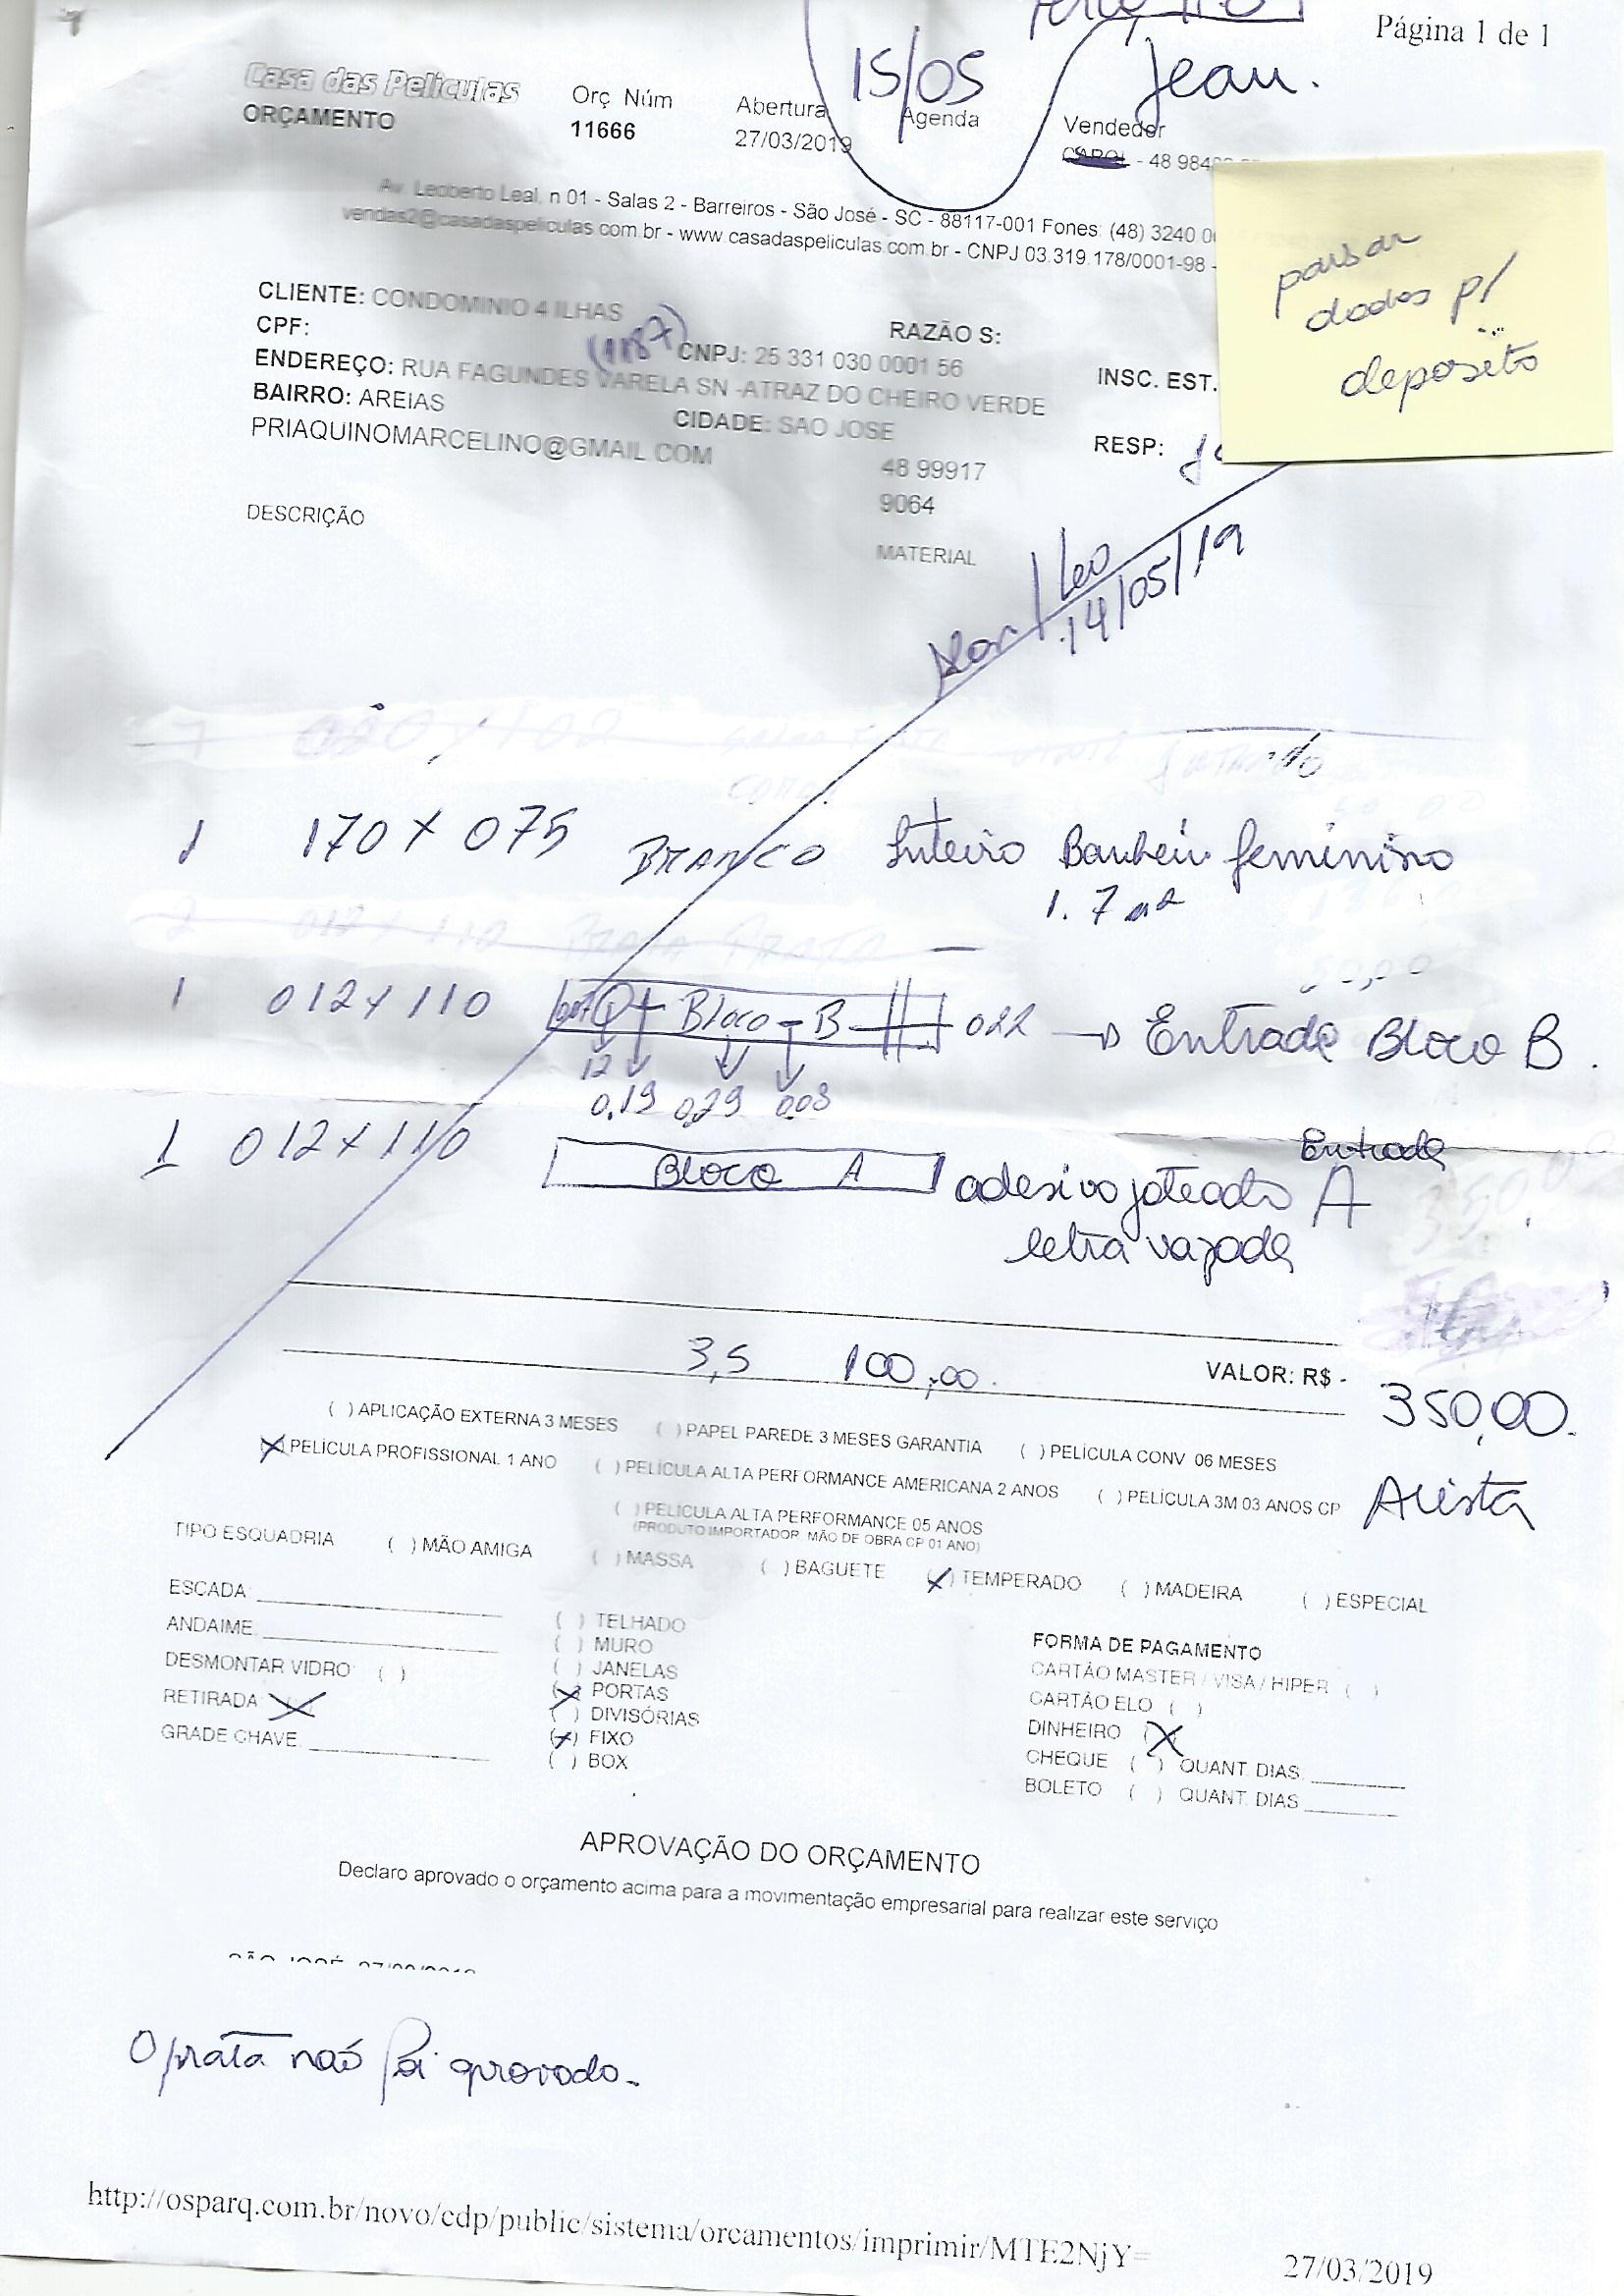 Página 1 de 1
15/05 Jean.
Casa das Peliculas
ORÇAMENTO
Orç Núm
11666
Abertura
27/03/2019
Agenda
Vendedor
CAROL - 48 984
Av. Leoberto Leal, n 01 - Salas 2 - Barreiros - São José - SC - 88117-001 Fones: (48) 3240
vendas2@casadaspeliculas.com.br - www.casadaspeliculas.com.br - CNPJ 03.319.178/0001-98 -
passar
dados p/
deposito
CLIENTE: CONDOMINIO 4 ILHAS
RAZÃO S:
CPF:
(1187)
CNPJ: 25 331 030 0001 56
INSC. EST.
ENDEREÇO: RUA FAGUNDES VARELA SN -ATRAZ DO CHEIRO VERDE
BAIRRO: AREIAS
CIDADE: SAO JOSE
RESP:
PRIAQUINOMARCELINO@GMAIL.COM
48 99917
9064
DESCRIÇÃO
MATERIAL
Leo
14/05/19
1 170 X 075 BRANCO Inteiro Banheiro feminino
1.7 m2
1 012 x 110 Bloco - B 022 → Entrada Bloco B.
12
0,19 0,29 0,08
1 012 x 110 Bloco A adesivo jateado Entrada A
letra vazada
3,5 100,00.
VALOR: R$ - 350,00.
Avista
( ) APLICAÇÃO EXTERNA 3 MESES ( ) PAPEL PAREDE 3 MESES GARANTIA ( ) PELÍCULA CONV 06 MESES
(X) PELÍCULA PROFISSIONAL 1 ANO ( ) PELÍCULA ALTA PERFORMANCE AMERICANA 2 ANOS ( ) PELÍCULA 3M 03 ANOS CP
( ) PELÍCULA ALTA PERFORMANCE 05 ANOS
(PRODUTO IMPORTADOR MÃO DE OBRA CP 01 ANO)
TIPO ESQUADRIA ( ) MÃO AMIGA ( ) MASSA ( ) BAGUETE (X) TEMPERADO ( ) MADEIRA ( ) ESPECIAL
ESCADA:
ANDAIME:
DESMONTAR VIDRO ( )
RETIRADA X
GRADE CHAVE:
( ) TELHADO
( ) MURO
( ) JANELAS
(X) PORTAS
( ) DIVISÓRIAS
(X) FIXO
( ) BOX
FORMA DE PAGAMENTO
CARTÃO MASTER / VISA / HIPER ( )
CARTÃO ELO ( )
DINHEIRO (X)
CHEQUE ( ) QUANT. DIAS
BOLETO ( ) QUANT. DIAS
APROVAÇÃO DO ORÇAMENTO
Declaro aprovado o orçamento acima para a movimentação empresarial para realizar este serviço
O prata não foi aprovado.
http://osparq.com.br/novo/cdp/public/sistema/orcamentos/imprimir/MTE2NjY=
27/03/2019